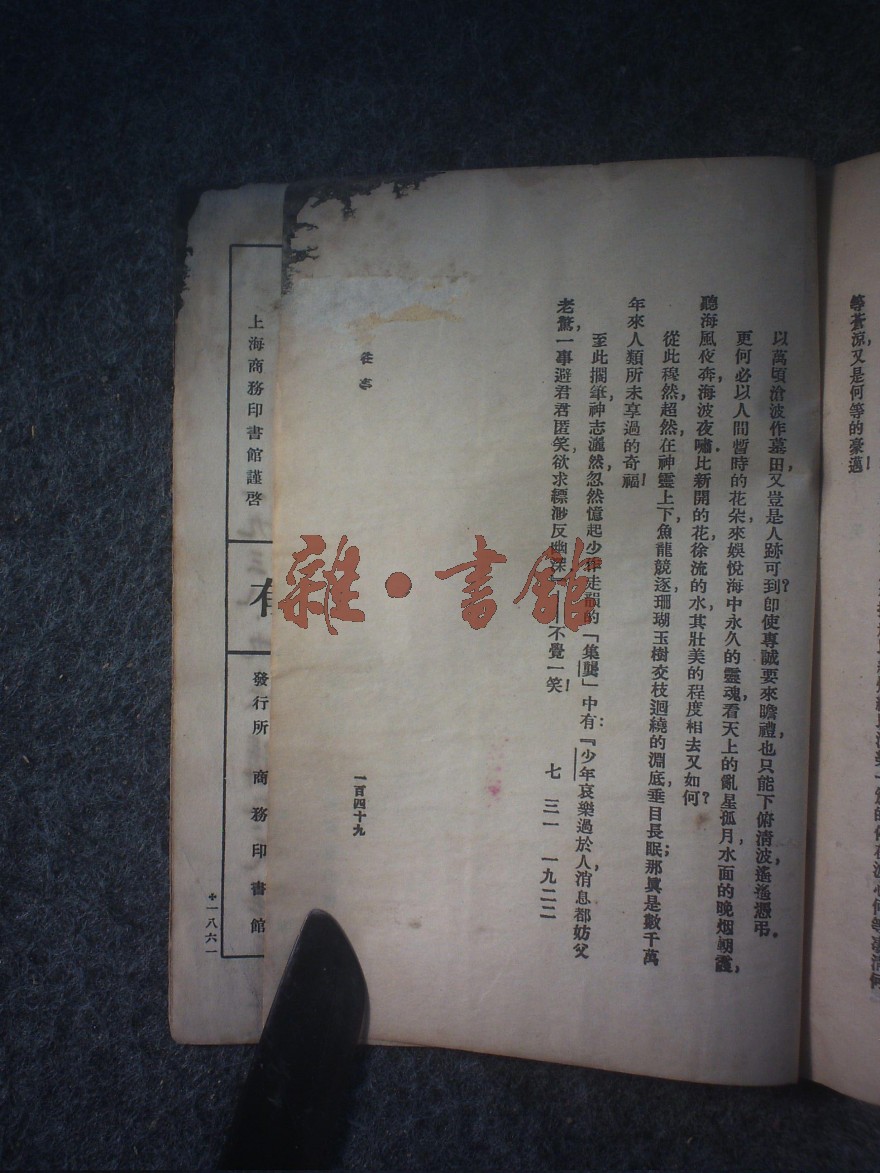 等蒼涼，又是何等的豪邁！
以萬頃滄波作墓田，又豈是人跡可到？即使專誠要來瞻禮，也只能下俯清波，遙遙憑弔。
更何必以人間暫時的花朵，來娛悅海中永久的靈魂，看天上的亂星孤月，水面的晚烟朝霞，
聽海風夜奔，海波夜嘯，比新開的花，徐流的水，其壯美的程度相去又如何？
從此穆然，超然，在神靈上下，魚龍競逐，珊瑚玉樹交枝迴繞的淵底，垂目長眠；那眞是數千萬
年來人類所未享過的奇福！
至此擱筆，神志灑然，忽然憶起少作走韻的「集龔」中有：『少年哀樂過於人，消息都妨父
老驚，一事避君君匿笑，欲求縹渺反幽深，』——不覺一笑！
七 三一 一九二二
往事
一百四十九
上海商務印書館謹啓
發行所 商務印書館
十一八六一
雜·書館